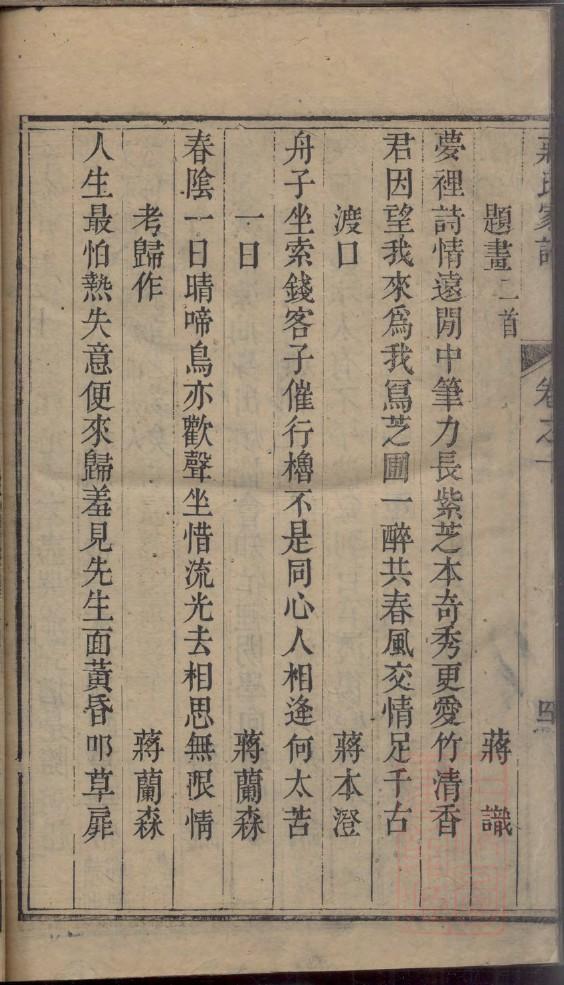 蔣氏家訓 卷之十 四
題畫二首 蔣 識
夢裡詩情遠閒中筆力長紫芝本奇秀更愛竹清香
君因望我來爲我寫芝圃一醉共春風交情足千古
渡口 蔣本澄
舟子坐索錢客子催行櫓不是同心人相逢何太苦
一日 蔣蘭森
春陰一日晴啼鳥亦歡聲坐惜流光去相思無限情
考歸作 蔣蘭森
人生最怕熱失意便來歸羞見先生面黃昏叩草扉